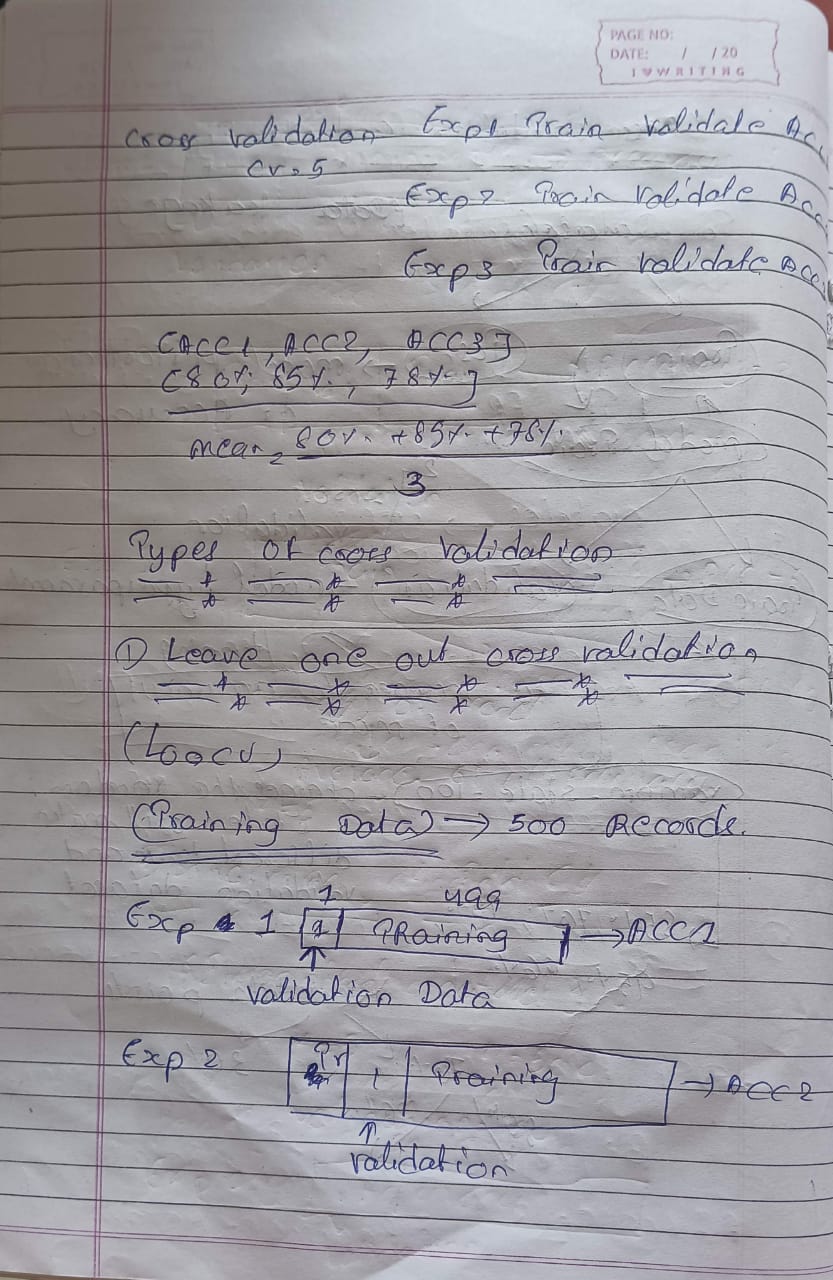 PAGE NO:
DATE: / / 20
I ♥ WRITING
Cross validation Exp1 Train validate Acc
CV=5
Exp 2 Train validate Acc
Exp 3 Train validate Acc
[ACC1, ACC2, ACC3]
[80%, 85%, 78%]
mean = 80% + 85% + 78%
3
Types of cross validation
① Leave one out cross validation
(LOOCV)
(Training Data) → 500 Records.
1 499
Exp 1 1 Training → ACC1
validation Data
Exp 2 Tr 1 Training → ACC2
validation